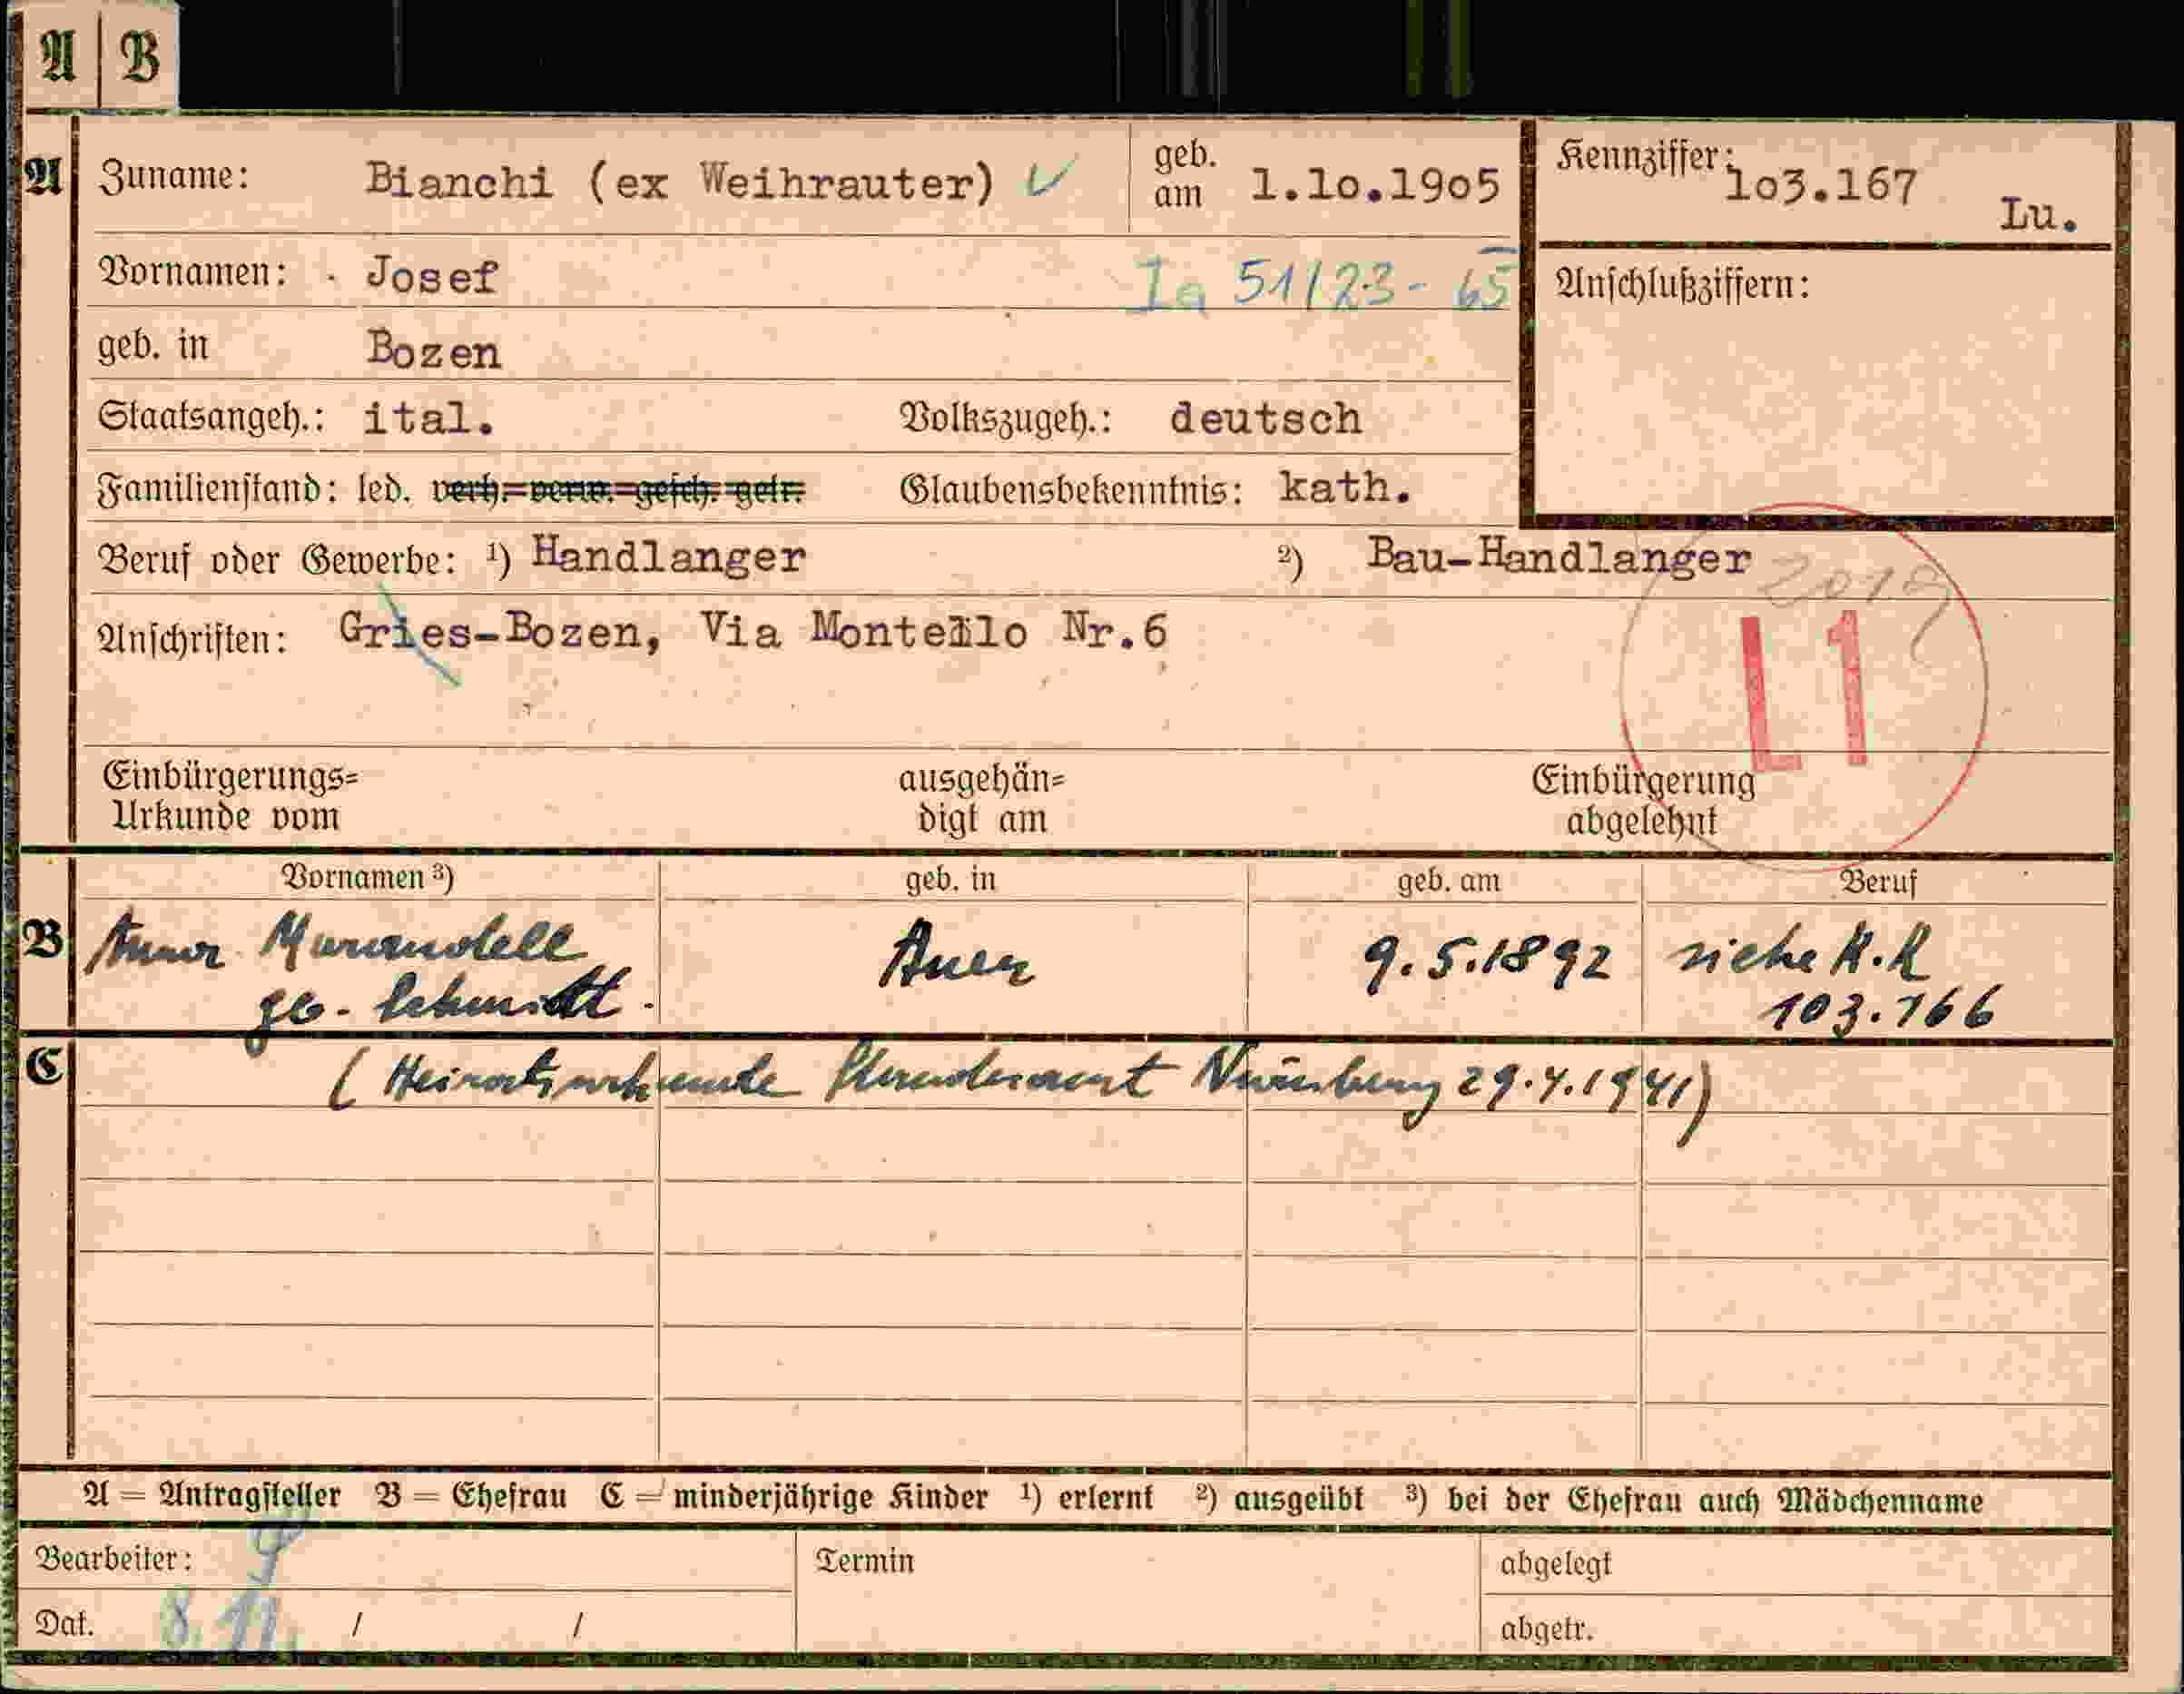 A B
A Zuname: Bianchi (ex Weihrauter) geb. am 1.10.1905 Kennziffer: 103.167 Lu.
Vornamen: Josef Ia 51/23-65
Anschlußziffern:
geb. in Bozen
Staatsangeh.: ital. Volkszugeh.: deutsch
Familienstand: led. verh. verw. gesch. getr. Glaubensbekenntnis: kath.
Beruf oder Gewerbe: 1) Handlanger 2) Bau-Handlanger
Anschriften: Gries-Bozen, Via Montello Nr.6
L1
Einbürgerungs= ausgehän= Einbürgerung
Urkunde vom digt am abgelehnt
Vornamen 3) geb. in geb. am Beruf
B Anna Marandell Auer 9.5.1892 siehe K.K
geb. Schmidt. 103.166
C (Heiratsurkunde Standesamt Nürnberg 29.4.1941)
A = Antragsteller B = Ehefrau C = minderjährige Kinder 1) erlernt 2) ausgeübt 3) bei der Ehefrau auch Mädchenname
Bearbeiter: Termin abgelegt
Dat. 8.11. / / abgetr.